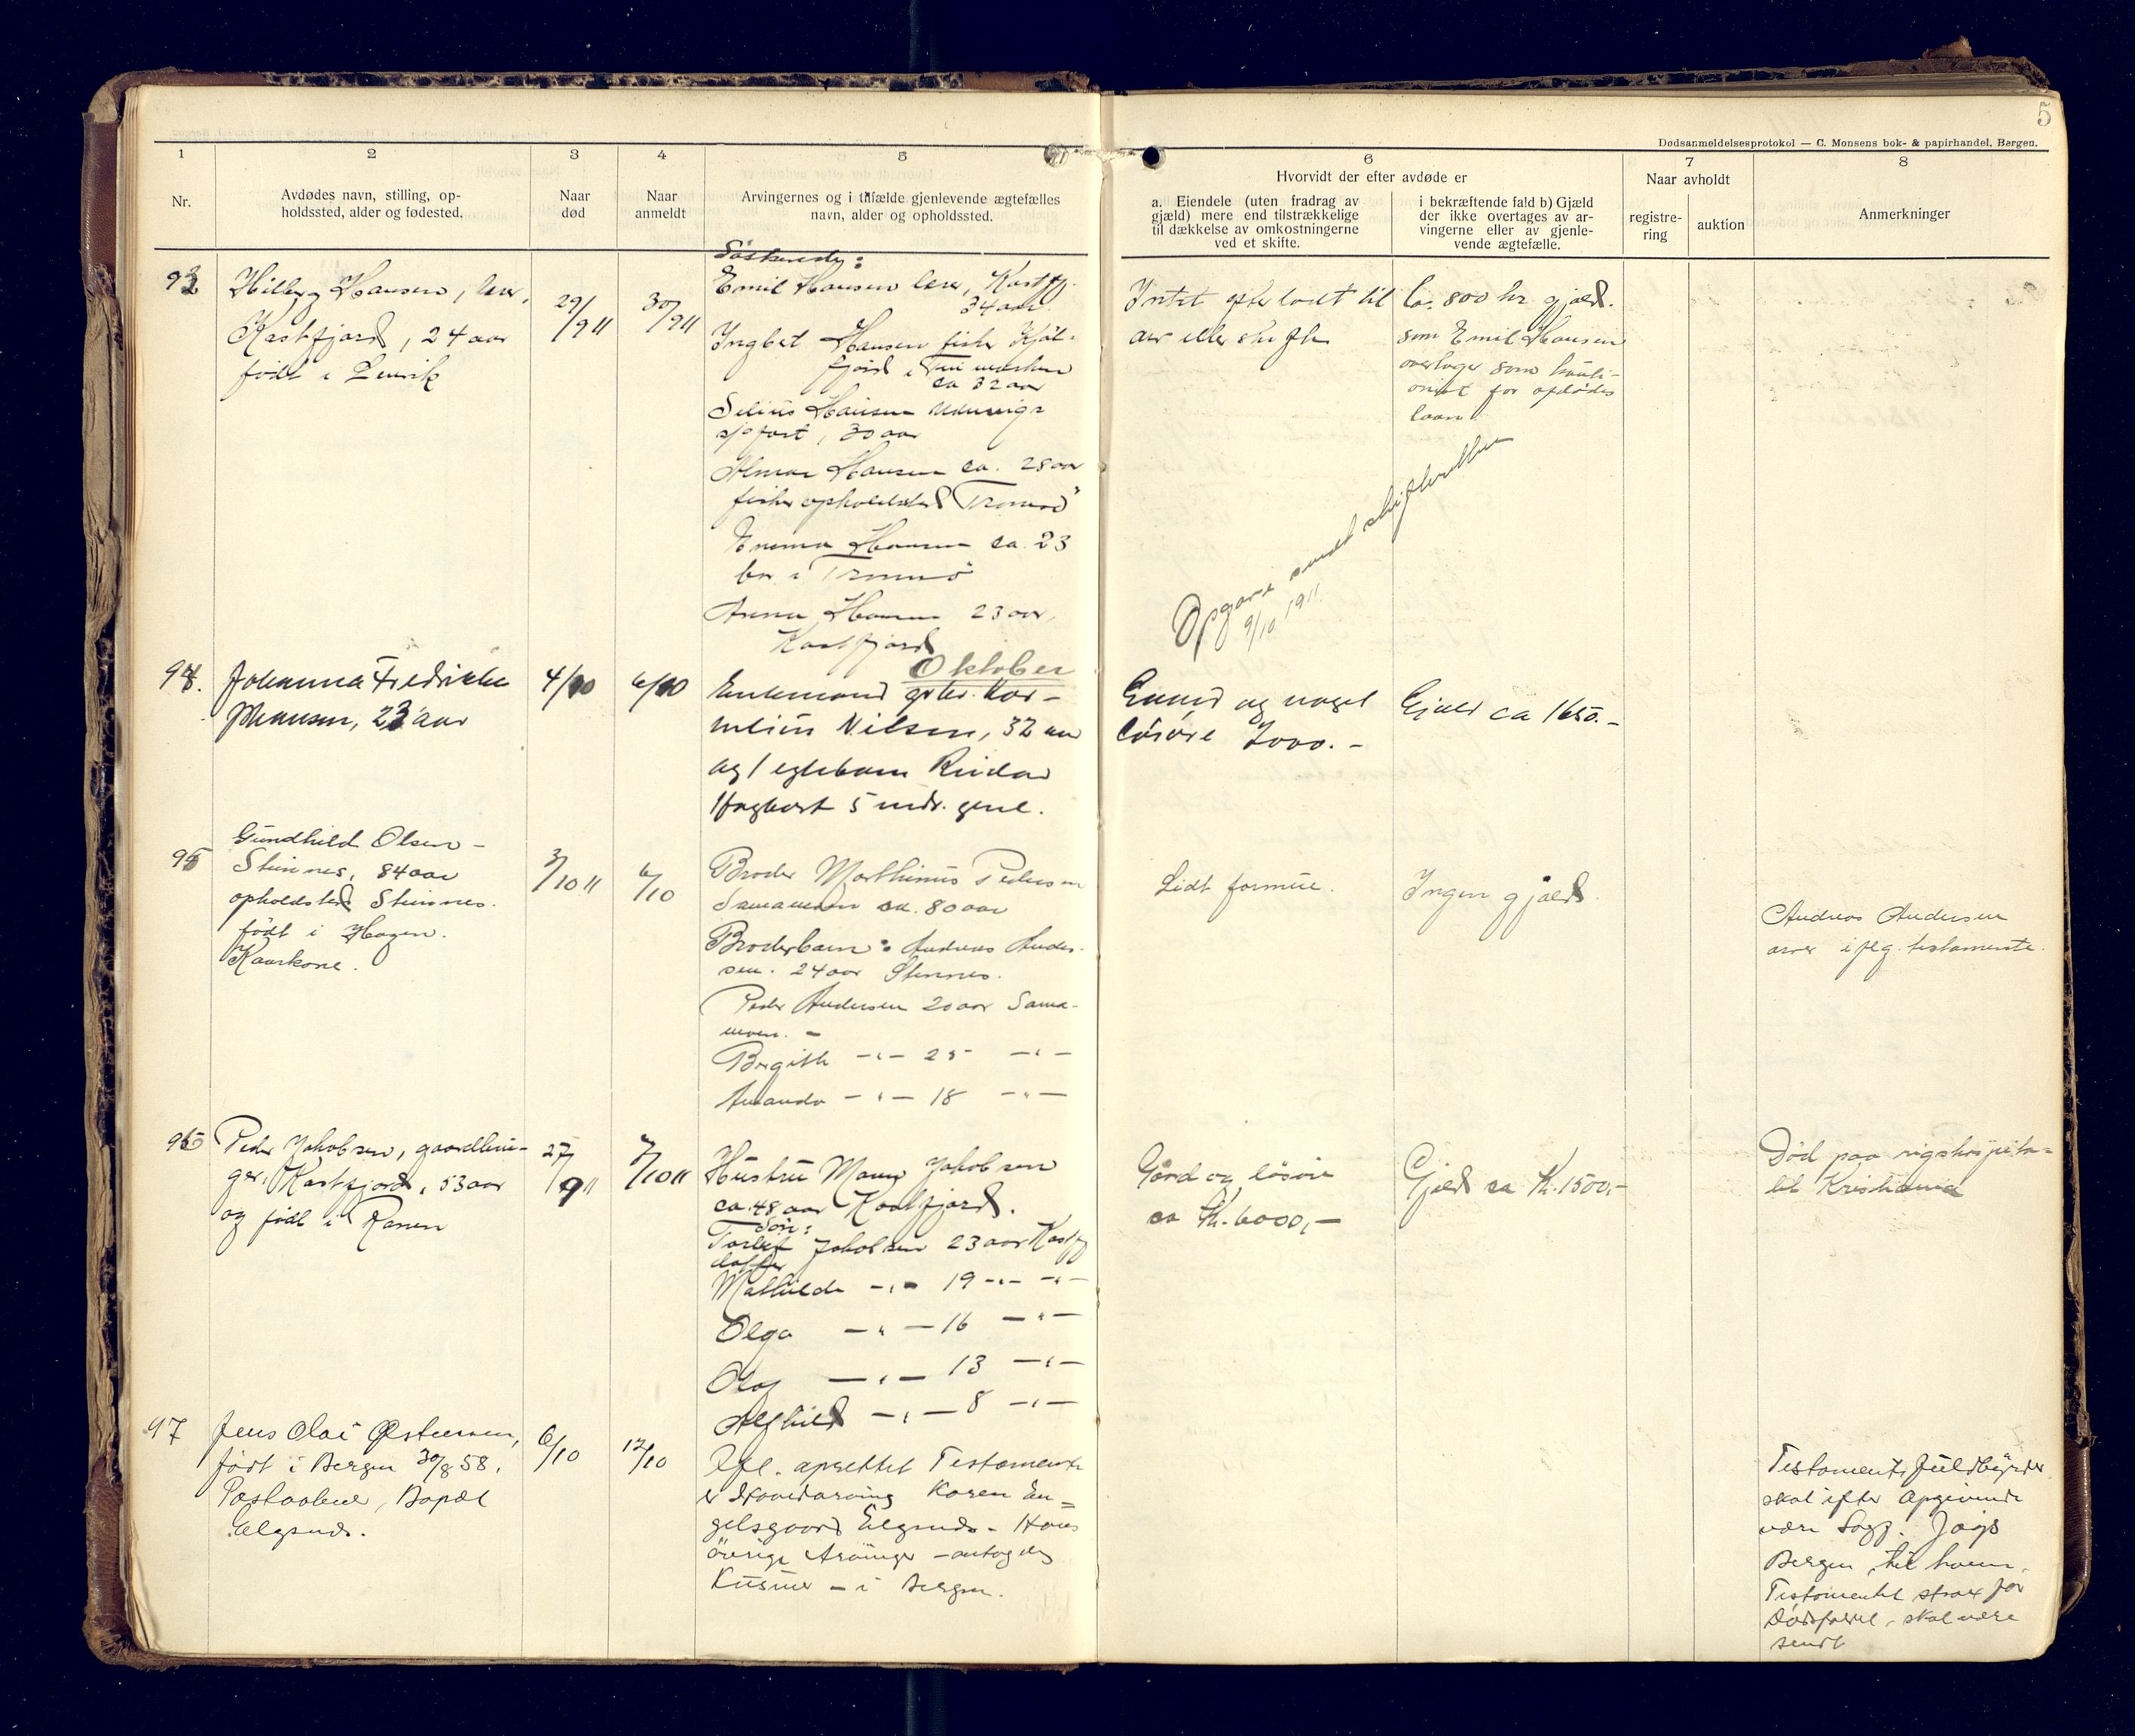 5
Dødsanmeldelsesprotokol — C. Monsens bok- & papirhandel, Bergen.
1
2
3
4
5
6
7
8
Nr.
Avdødes navn, stilling, op-
holdssted, alder og fødested.
Naar
død
Naar
anmeldt
Arvingernes og i tilfælde gjenlevende ægtefælles
navn, alder og opholdssted.
Hvorvidt der efter avdøde er
a. Eiendele (uten fradrag av
gjæld) mere end tilstrækkelige
til dækkelse av omkostningerne
ved et skifte.
i bekræftende fald b) Gjæld
der ikke overtages av ar-
vingerne eller av gjenle-
vende ægtefælle.
Naar avholdt
registre-
ring
auktion
Anmerkninger
93
Hansen,
Kastfjord, 24 aar
født i
29/9 11
30/9 11
Søskende:
Emil Hansen Kastfj.
34 aar
Hansen fisker
fjord i
ca 32 aar
Hansen
30 aar
Hansen ca. 28 aar
fisker opholdsted Tromsø
Emma Hansen ca. 23
bor i Tromsø
Anna Hansen 23 aar,
Kastfjord
Intet efterladt til
arv eller skifte
Ca. 800 kr gjæld.
som Emil Hansen
overtager som kauti-
onist for afdødes
laan
Opgave sendt skifteretten
9/10 1911.
Oktober
94.
Johanna Fredrikke
Johansen, 23 aar
4/10
6/10
Enkemand
Nilsen, 32 aar
og 1 egtebarn Reidar
Hagbart 5 mdr. gml.
Eiend og noget
løsøre
Gjæld ca 1650.-
95
Gundhild Olsen -
Steinnes, 84 aar
opholdsted Steinnes.
født i Hagen.
Kaarkone.
3/10 11
6/10
Broder Marthinus Pedersen
Samamoen ca. 80 aar
Broderbarn: Andreas Ander-
sen. 24 aar Steinnes.
Peder Andersen 20 aar Sama-
moen. -
Birgith -"- 25 -"-
Amanda -"- 18 -"-
Lidt formue.
Ingen gjæld.
Andreas Andersen
arver ifølg. testamente.
96
Peder Jakobsen, gaardbru-
ger, Kastfjord, 53 aar
og født i Ranen
27/9 11
7/10 11
Hustru Jakobsen
ca. 48 aar Kastfjord.
Søn:
Torleif Jakobsen 23 aar Kastfj
datter
Mathilde -"- 19 -"- -"-
Olga -"- 16 -"-
Olaf -"- 13 -"-
Alfhild -"- 8 -"-
Gaard og løsøre
ca Kr. 6000,-
Gjæld ca Kr. 1500,-
Død paa rigshospita-
let Kristiania
97
Jens Olai
født i Bergen 30/8 58.
Postaabner, Bopæl
Elgsnes.
6/10
12/10
Ifl. oprettet Testamente
er Hovedarving Karen En-
gelsgaard Elgsnes - Hans
øvrige Arvinger - antagelig
Kusiner - i Bergen.
Testaments fuldbyrder
skal efter Opgivende
være Sagf.
Bergen, til hvem
Testamentet strax før
Dødsfaldet, skal være
sendt